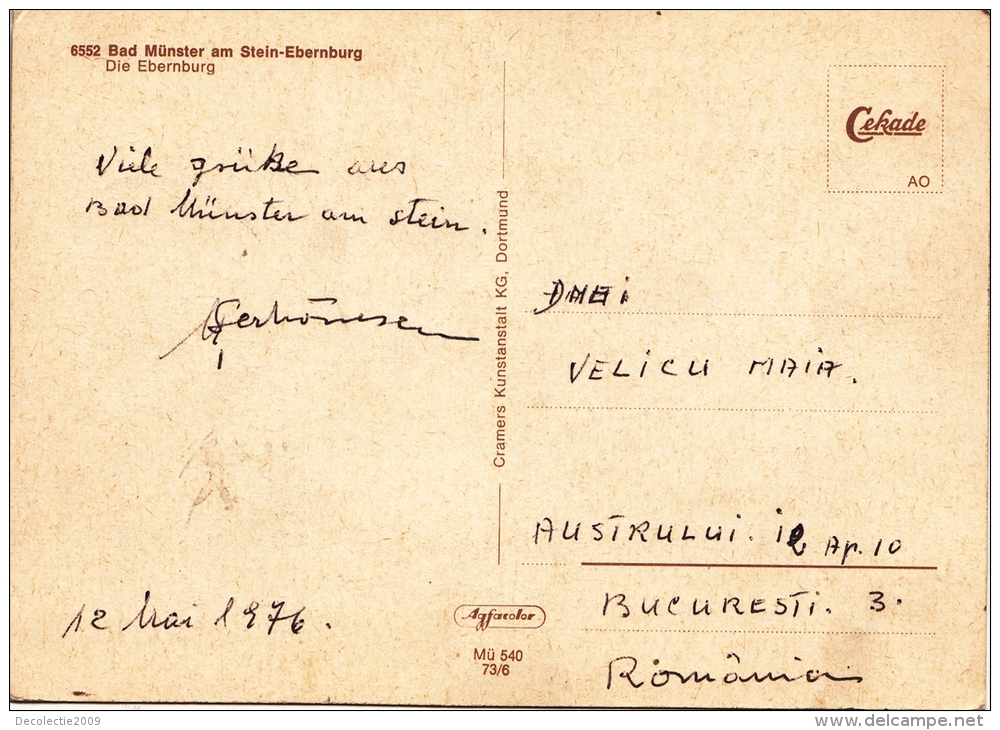 6552 Bad Münster am Stein-Ebernburg
Die Ebernburg
Viele grüße aus
Bad Münster am Stein.
12 Mai 1976.
Cramers Kunstanstalt KG, Dortmund
Agfacolor
Mü 540
73/6
Cekade
AO
VELICU MAIA.
AUSTRULUI. Ap. 10
BUCURESTI. 3.
România
Decolectie2009
www.delcampe.net